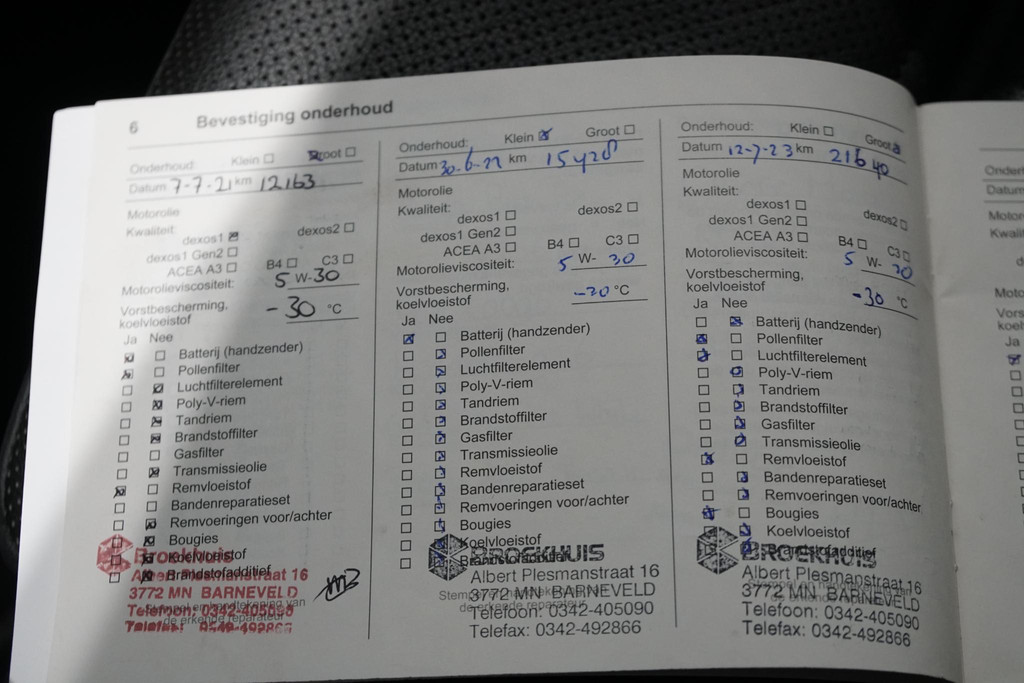 6 Bevestiging onderhoud
Onderhoud: Klein Groot
Datum 7-7-21 km 12163
Motorolie
Kwaliteit:
dexos1 dexos2
dexos1 Gen2
ACEA A3 B4 C3
Motorolieviscositeit: 5 W-30
Vorstbescherming,
koelvloeistof -30 °C
Ja Nee
Batterij (handzender)
Pollenfilter
Luchtfilterelement
Poly-V-riem
Tandriem
Brandstoffilter
Gasfilter
Transmissieolie
Remvloeistof
Bandenreparatieset
Remvoeringen voor/achter
Bougies
Koelvloeistof
Brandstofadditief
Broekhuis
Albert Plesmanstraat 16
3772 MN BARNEVELD
Stempel en handtekening van
de erkende reparateur
Telefoon: 0342-405090
Telefax: 0342-492866
Onderhoud: Klein Groot
Datum 30-6-22 km 15428
Motorolie
Kwaliteit:
dexos1 dexos2
dexos1 Gen2
ACEA A3 B4 C3
Motorolieviscositeit: 5 W- 30
Vorstbescherming,
koelvloeistof -30 °C
Ja Nee
Batterij (handzender)
Pollenfilter
Luchtfilterelement
Poly-V-riem
Tandriem
Brandstoffilter
Gasfilter
Transmissieolie
Remvloeistof
Bandenreparatieset
Remvoeringen voor/achter
Bougies
Koelvloeistof
Brandstofadditief
BROEKHUIS
Albert Plesmanstraat 16
3772 MN BARNEVELD
Telefoon: 0342-405090
Telefax: 0342-492866
Stempel en handtekening van
de erkende reparateur
Onderhoud: Klein Groot
Datum 12-7-23 km 21640
Motorolie
Kwaliteit:
dexos1 dexos2
dexos1 Gen2
ACEA A3 B4 C3
Motorolieviscositeit: 5 W- 30
Vorstbescherming,
koelvloeistof -30 °C
Ja Nee
Batterij (handzender)
Pollenfilter
Luchtfilterelement
Poly-V-riem
Tandriem
Brandstoffilter
Gasfilter
Transmissieolie
Remvloeistof
Bandenreparatieset
Remvoeringen voor/achter
Bougies
Koelvloeistof
Brandstofadditief
BROEKHUIS
Albert Plesmanstraat 16
Stempel en handtekening van
3772 MN BARNEVELD
de erkende reparateur
Telefoon: 0342-405090
Telefax: 0342-492866
Ja